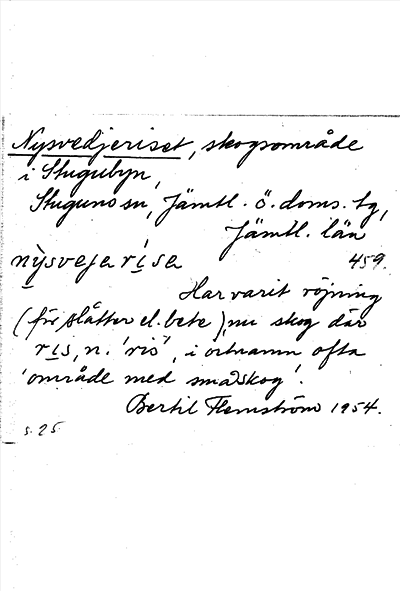 Nysvedjeriset, skogsområde
i Stugubyn,
Stuguns sn, Jämtl. ö. doms. tg,
Jämtl. län
nỳsveȷarísa 459.
Har varit röjning
(för slåtter el. bete), nu skog där
rıs, n. 'ris', i ortnamn ofta
'område med småskog'.
Bertil Flemström 1954.
s. 25